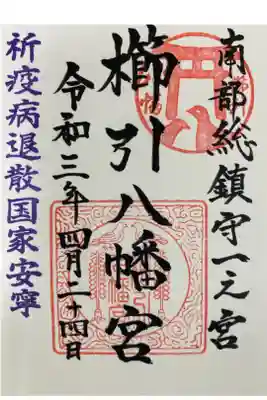 南部総鎮守一之宮
櫛引八幡宮
令和三年四月二十四日
祈疫病退散国家安寧